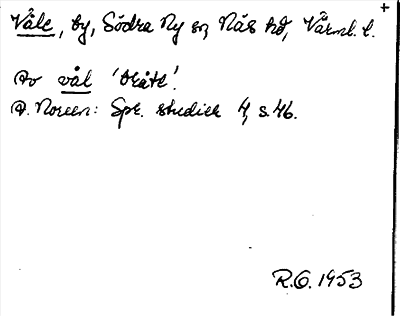 +
Våle, by, Södra Ny sn, Näs hd, Värml. l.
Av vål 'bråte'.
A. Noreen: Spr. studier 4, s. 46.
R.O. 1953